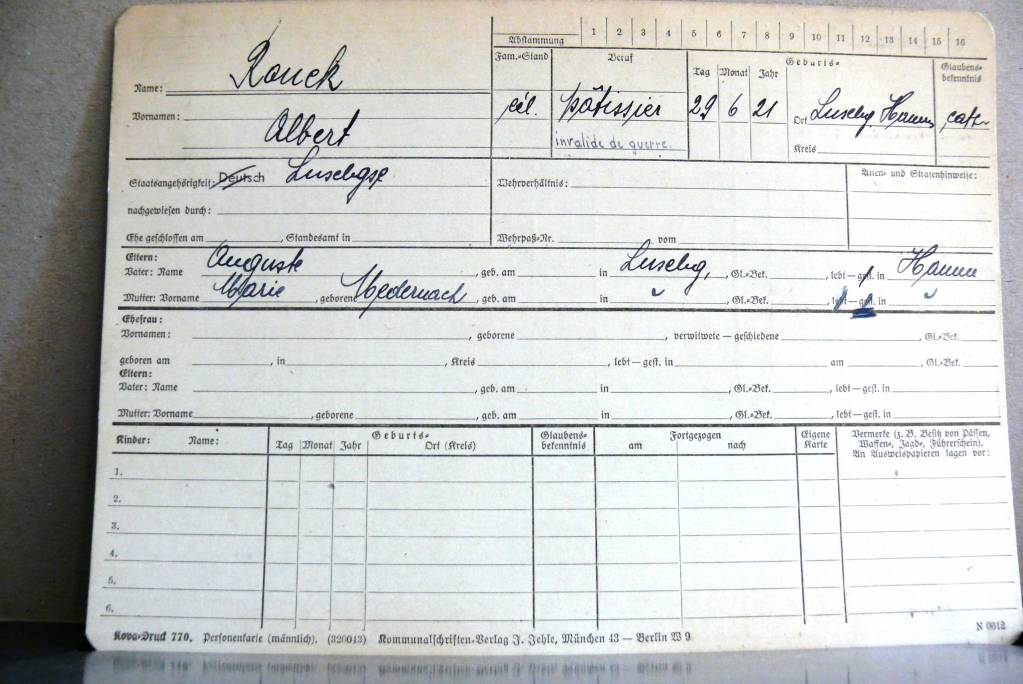 Abstammung 1 2 3 4 5 6 7 8 9 10 11 12 13 14 15 16
Name: Ronck
Vornamen: Albert
Fam.=Stand Beruf Geburts= Glaubens=
bekenntnis
Tag Monat Jahr
cél. pâtissier 29 6 21 Ort Luxbg Hamm cath
invalide de guerre. Kreis
Staatsangehörigkeit: Deutsch Luxbgse Wehrverhältnis: Akten= und Strafenhinweise:
nachgewiesen durch:
Ehe geschlossen am , Standesamt in Wehrpaß=Nr. vom
Eltern:
Vater: Name Auguste , geb. am in Luxbg, , Gl.=Bek. , lebt — gest. in Hamm
Mutter: Vorname Marie , geborene Medernach , geb. am in " , Gl.=Bek. , lebt — gest. in "
Ehefrau:
Vornamen: , geborene , verwitwete — geschiedene , Gl.=Bek.
geboren am , in , Kreis , lebt — gest. in am , Gl.=Bek.
Eltern:
Vater: Name , geb. am in , Gl.=Bek. , lebt — gest. in
Mutter: Vorname , geborene , geb. am in , Gl.=Bek. , lebt — gest. in
Kinder: Name: Geburts= Glaubens=
bekenntnis Fortgezogen Eigene
Karte Vermerke (z. B. Besitz von Pässen,
Waffen=, Jagd=, Führerschein).
An Ausweispapieren lagen vor:
Tag Monat Jahr Ort (Kreis) am nach
1.
2.
3.
4.
5.
6.
Kova=Druck 770. Personenkarte (männlich). (320043) Kommunalschriften=Verlag J. Jehle, München 43 — Berlin W 9 N 0012